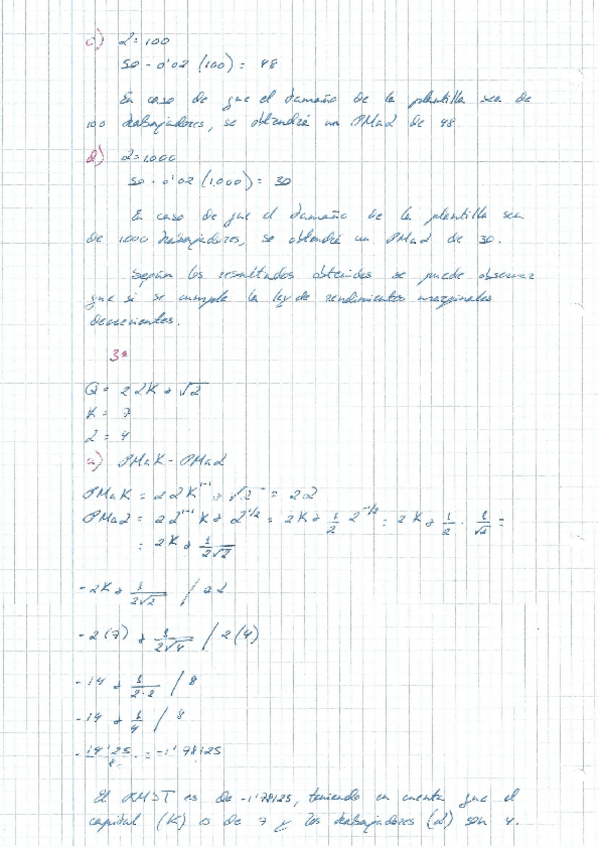 c) L = 100
50 - 0'02 (100) = 48
En caso de que el tamaño de la plantilla sea de
100 trabajadores, se obtendrá un PMaL de 48
d) L = 1.000
50 - 0'02 (1.000) = 30
En caso de que el tamaño de la plantilla sea
de 1000 trabajadores, se obtendrá un PMaL de 30.
Según los resultados obtenidos se puede observar
que si se cumple la ley de rendimientos marginales
decrecientes.
3º
Q = 2LK + √L
K = 7
L = 4
a) PMaK - PMaL
PMaK = 2LK¹⁻¹ + √L = 2L
PMaL = 2L¹⁻¹K + L^1/2 = 2K + 1/2 L^-1/2 = 2K + 1/2 · 1/√L =
= 2K + 1/2√L
-2K + 1/2√L / 2L
-2(7) + 1/2√4 / 2(4)
-14 + 1/2·2 / 8
-14 + 1/4 / 8
-14'25/8 = -1'78125
El RMST es de -1'78125, teniendo en cuenta que el
capital (K) es de 7 y los trabajadores (L) son 4.